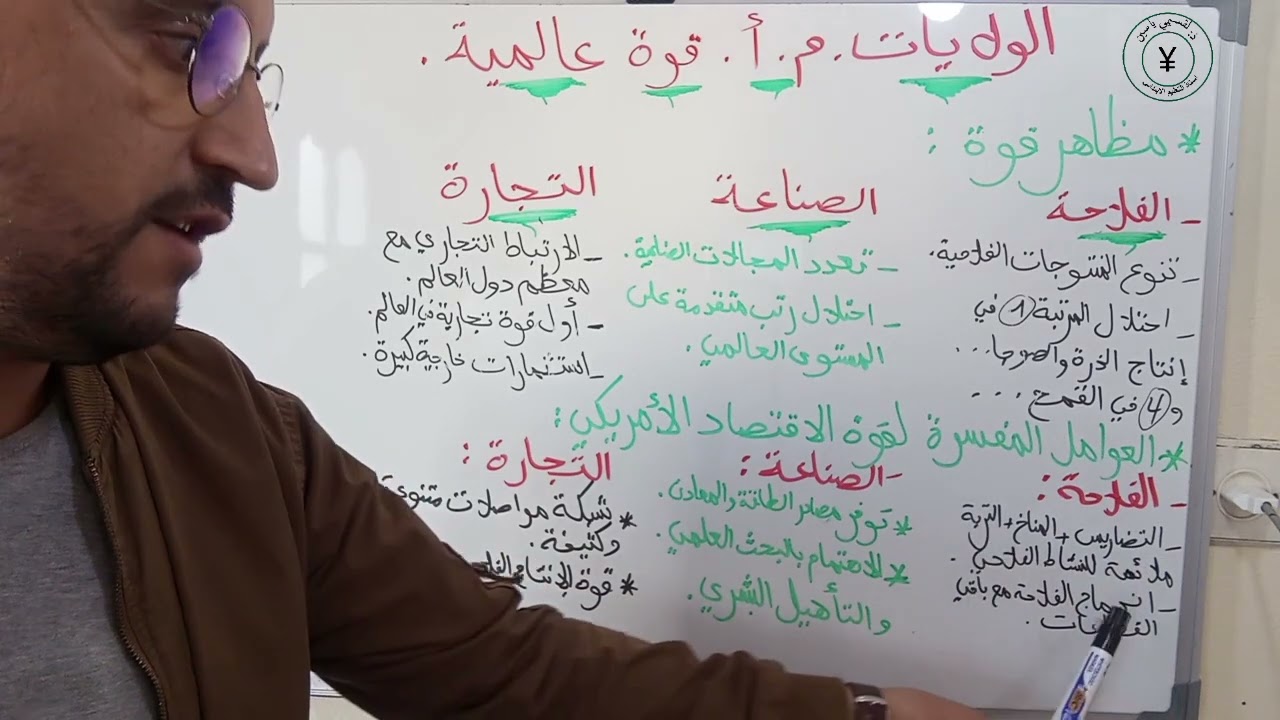 الولايات. م. أ. قوة عالمية.
* مظاهر قوة :
- الفلاحة
- تنوع المنتوجات الفلاحية.
- احتلال المرتبة 1 في
إنتاج الذرة والصوجا...
و 4 في القمح ....
الصناعة
- تعدد المجالات الصناعية.
- احتلال رتب متقدمة على
المستوى العالمي.
التجارة
- الارتباط التجاري مع
معظم دول العالم.
- أول قوة تجارية في العالم.
- استثمارات خارجية كبيرة.
* العوامل المفسرة لقوة الاقتصاد الأمريكي:
- الفلاحة :
- التضاريس + المناخ + التربة
ملائمة للنشاط الفلاحي.
- اندماج الفلاحة مع باقي
- الصناعة :
* توفر مصادر الطاقة والمعادن.
* الاهتمام بالبحث العلمي.
والتأهيل البشري.
التجارة :
* شبكة مواصلات متنوعة
وكثيفة.
* قوة الإنتاج
¥